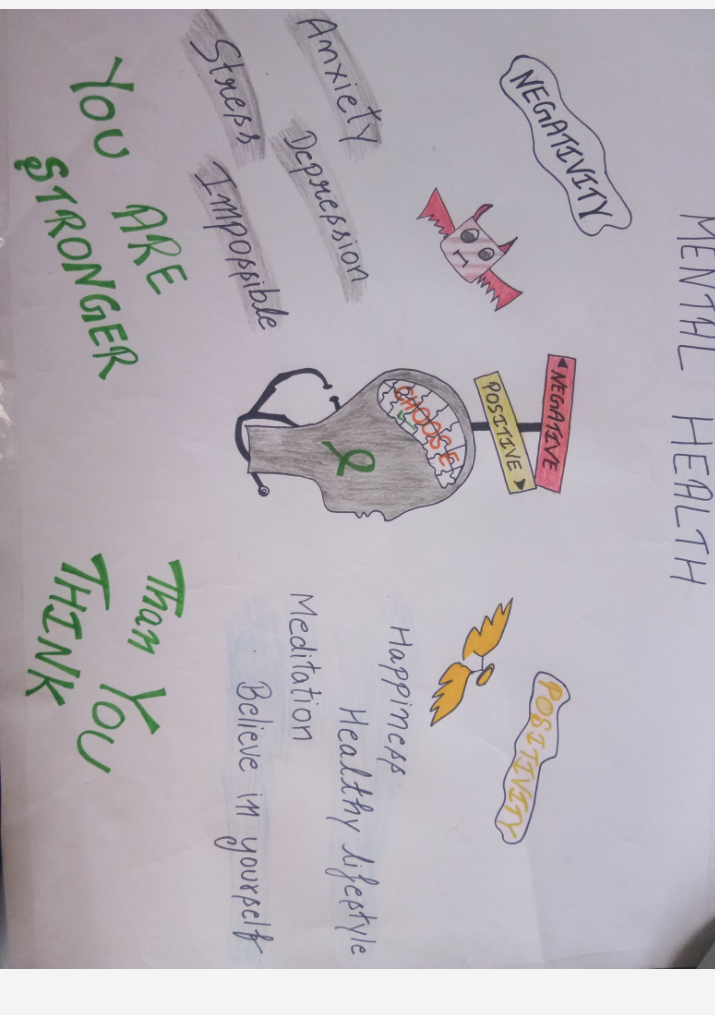 MENTAL HEALTH
NEGATIVITY
Anxiety
Depression
Stress
Impossible
NEGATIVE
POSITIVE
CHOOSE
POSITIVITY
Happiness
Healthy lifestyle
Meditation
Believe in yourself
YOU ARE
STRONGER
Than YOU
THINK